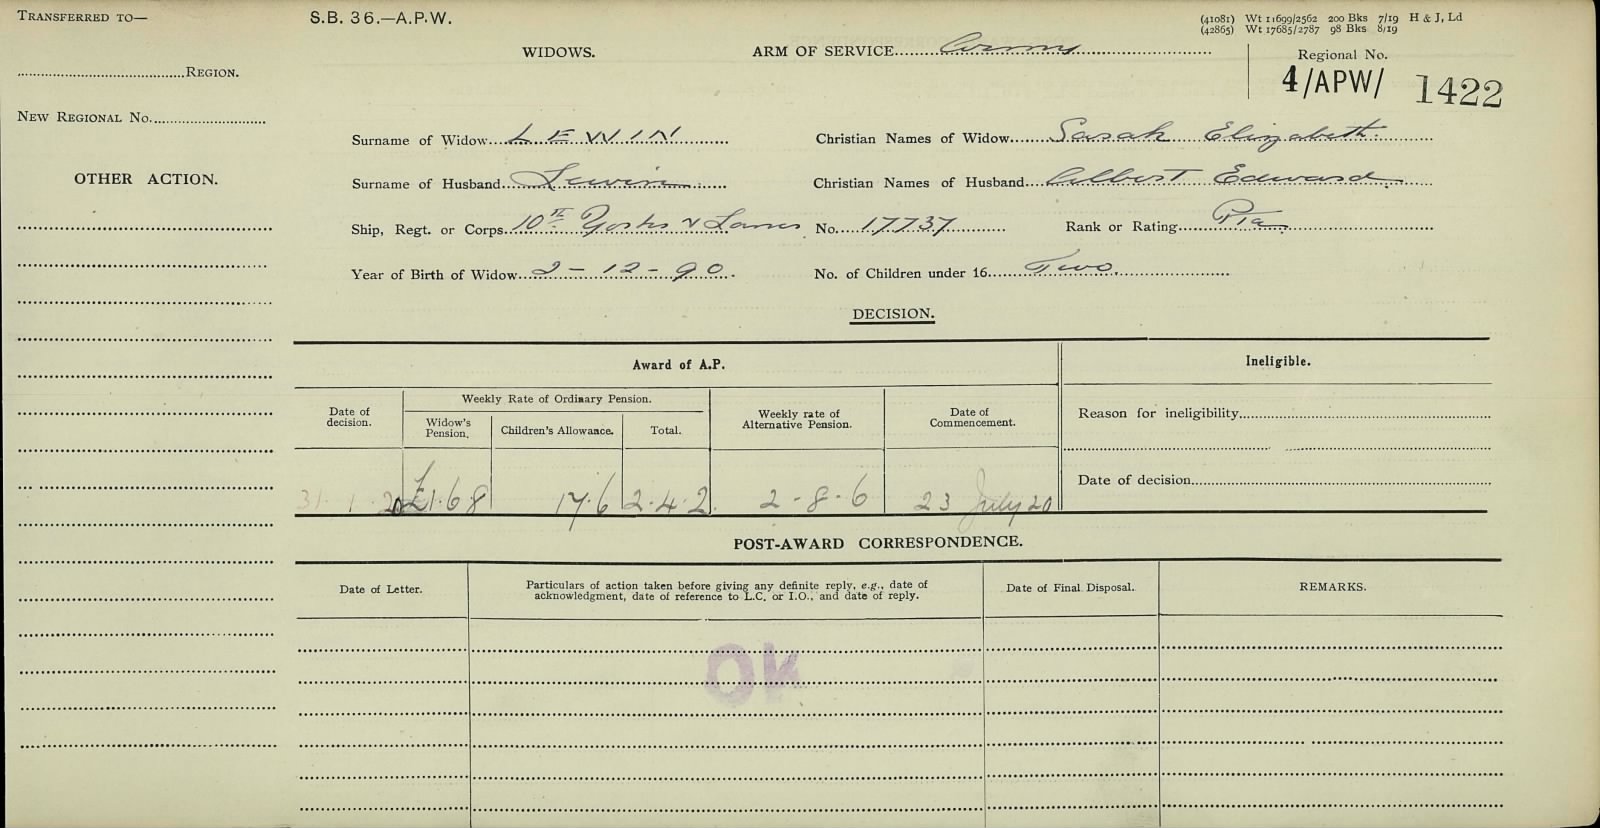 TRANSFERRED TO—
S.B. 36.—A.P.W.
(41081) Wt 11699/2562 200 Bks 7/19 H & J, Ld
(42865) Wt 17685/2787 98 Bks 8/19
WIDOWS.
ARM OF SERVICE Army
Regional No.
4/APW/ 1422
REGION.
NEW REGIONAL No.
Surname of Widow LEWIN
Christian Names of Widow Sarah Elizabeth
OTHER ACTION.
Surname of Husband Lewin
Christian Names of Husband Albert Edward
Ship, Regt. or Corps 10th Yorks & Lancs No. 17737
Rank or Rating Pte
Year of Birth of Widow 2-12-90.
No. of Children under 16 Two.
DECISION.
Award of A.P.
Ineligible.
Date of decision.
Weekly Rate of Ordinary Pension.
Widow's Pension.
Children's Allowance.
Total.
Weekly rate of Alternative Pension.
Date of Commencement.
Reason for ineligibility
Date of decision
31. 1. 20 £1.6.8 17.6 2.4.2. 2-8-6 23 July 20
POST-AWARD CORRESPONDENCE.
Date of Letter.
Particulars of action taken before giving any definite reply, e.g., date of
acknowledgment, date of reference to L.C. or I.O., and date of reply.
Date of Final Disposal.
REMARKS.
OK